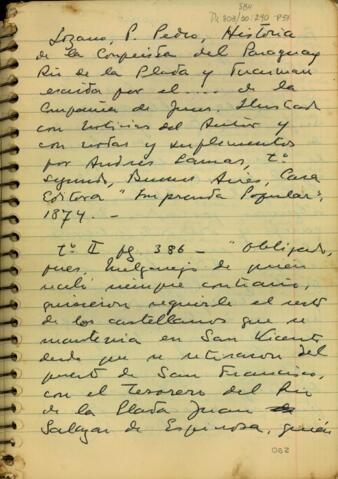 380
Lozano, P. Pedro, Historia
de la Conquista del Paraguay
Rio de la Plata y Tucuman
escrita por el .... de la
Compañia de Jesus. Ilustrada
con noticias del Autor y
con notas y suplementos
por Andrés Lamas, t.º
segundo, Buenos Aires, Casa
Editora "Imprenta Popular",
1874. -
t.º II pg. 386 - "Obligado,
pues, Melgarejo de quien
receló siempre contrario,
quisieron seguirle el resto
de los castellanos que se
mantenia en San Vicente
desde que se retiraron del
puerto de San Francisco,
con el Tesorero del Rio
de la Plata Juan de
Salazar de Espinosa, quién